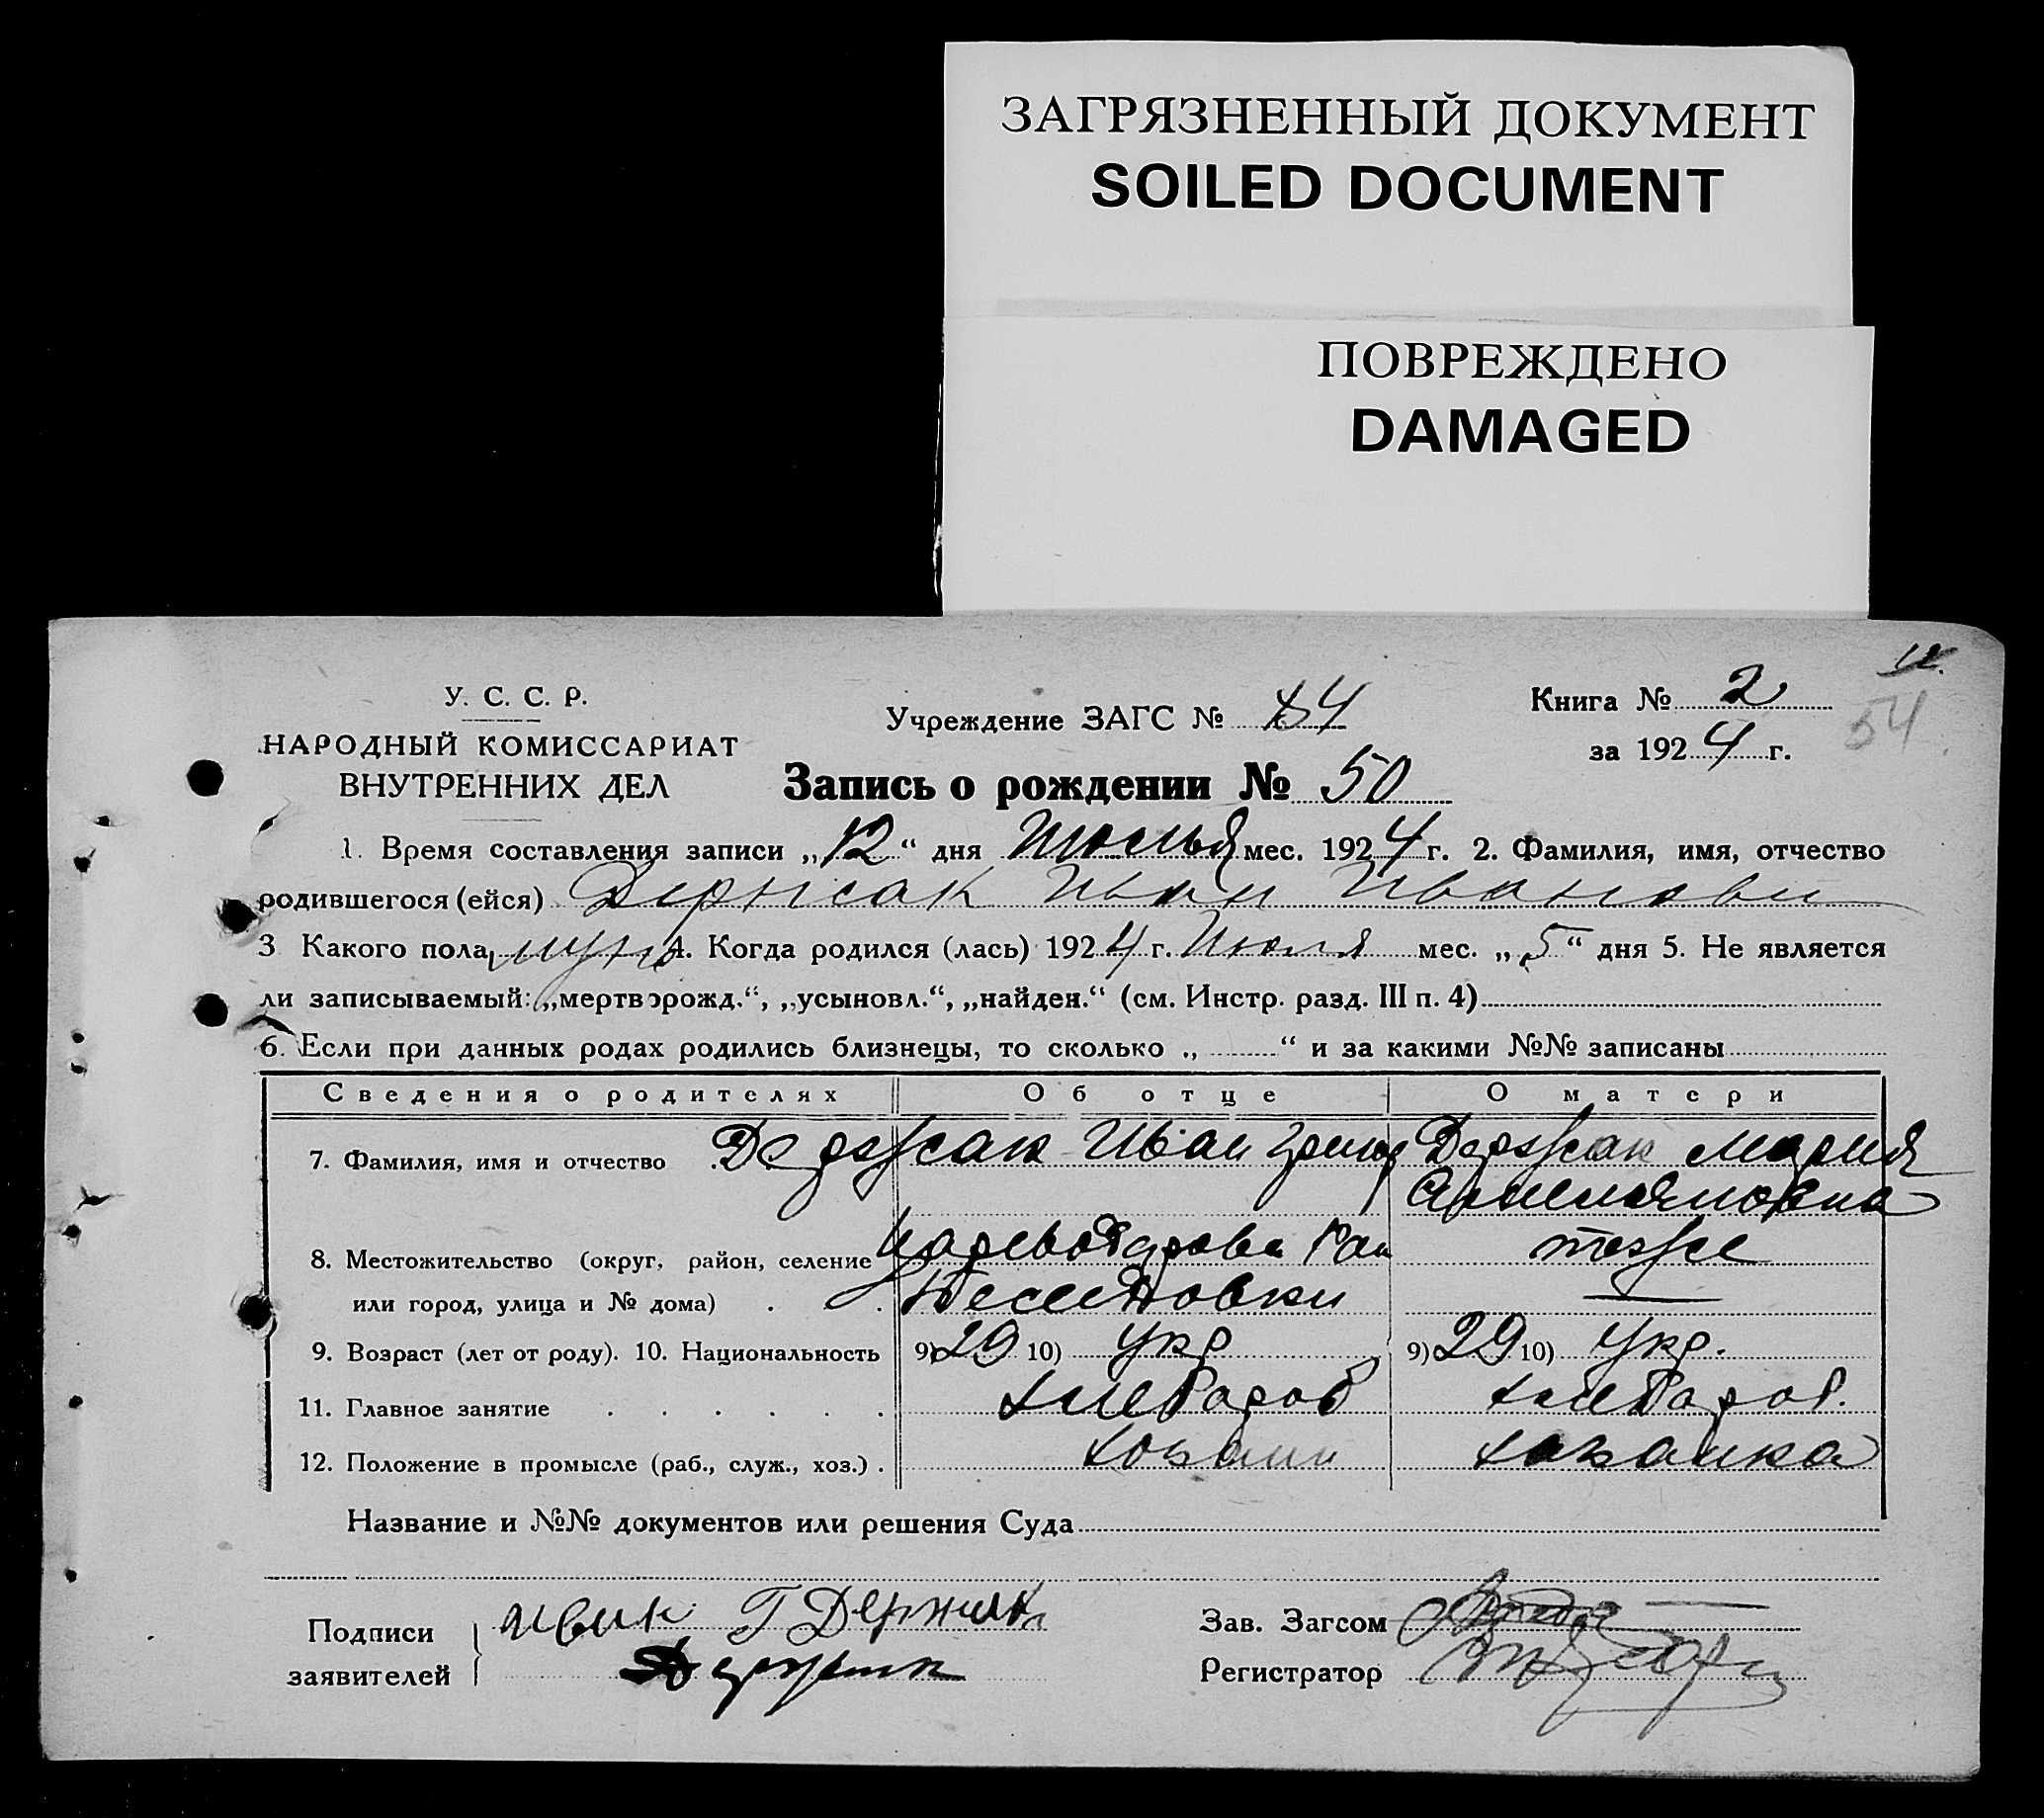 ЗАГРЯЗНЕННЫЙ ДОКУМЕНТ
SOILED DOCUMENT
ПОВРЕЖДЕНО
DAMAGED
У. С. С. Р.
НАРОДНЫЙ КОМИССАРИАТ
ВНУТРЕННИХ ДЕЛ
Учреждение ЗАГС №
Книга № 2
54
за 1924 г.
Запись о рождении № 50
1. Время составления записи „12“ дня Июлья мес. 1924 г. 2. Фамилия, имя, отчество
родившегося (ейся) Держак Иван Иванови
3 Какого пола муж 4. Когда родился (лась) 1924 г. Июля мес. „5“ дня 5. Не является
ли записываемый: „мертворожд.“, „усыновл.“, „найден.“ (см. Инстр. разд. III п. 4)
6. Если при данных родах родились близнецы, то сколько „ “ и за какими №№ записаны
Сведения о родителях Об отце О матери
7. Фамилия, имя и отчество Держак Иван Григ Держак Мария
8. Местожительство (округ, район, селение тоже
или город, улица и № дома)
9. Возраст (лет от роду). 10. Национальность 9) 29 10) Укр 9) 29 10) Укр.
11. Главное занятие хлебороб хлебороб.
12. Положение в промысле (раб., служ., хоз.) хозяин хозаика
Название и №№ документов или решения Суда
Подписи заявителей Иван Г Держак
Держак
Зав. Загсом
Регистратор